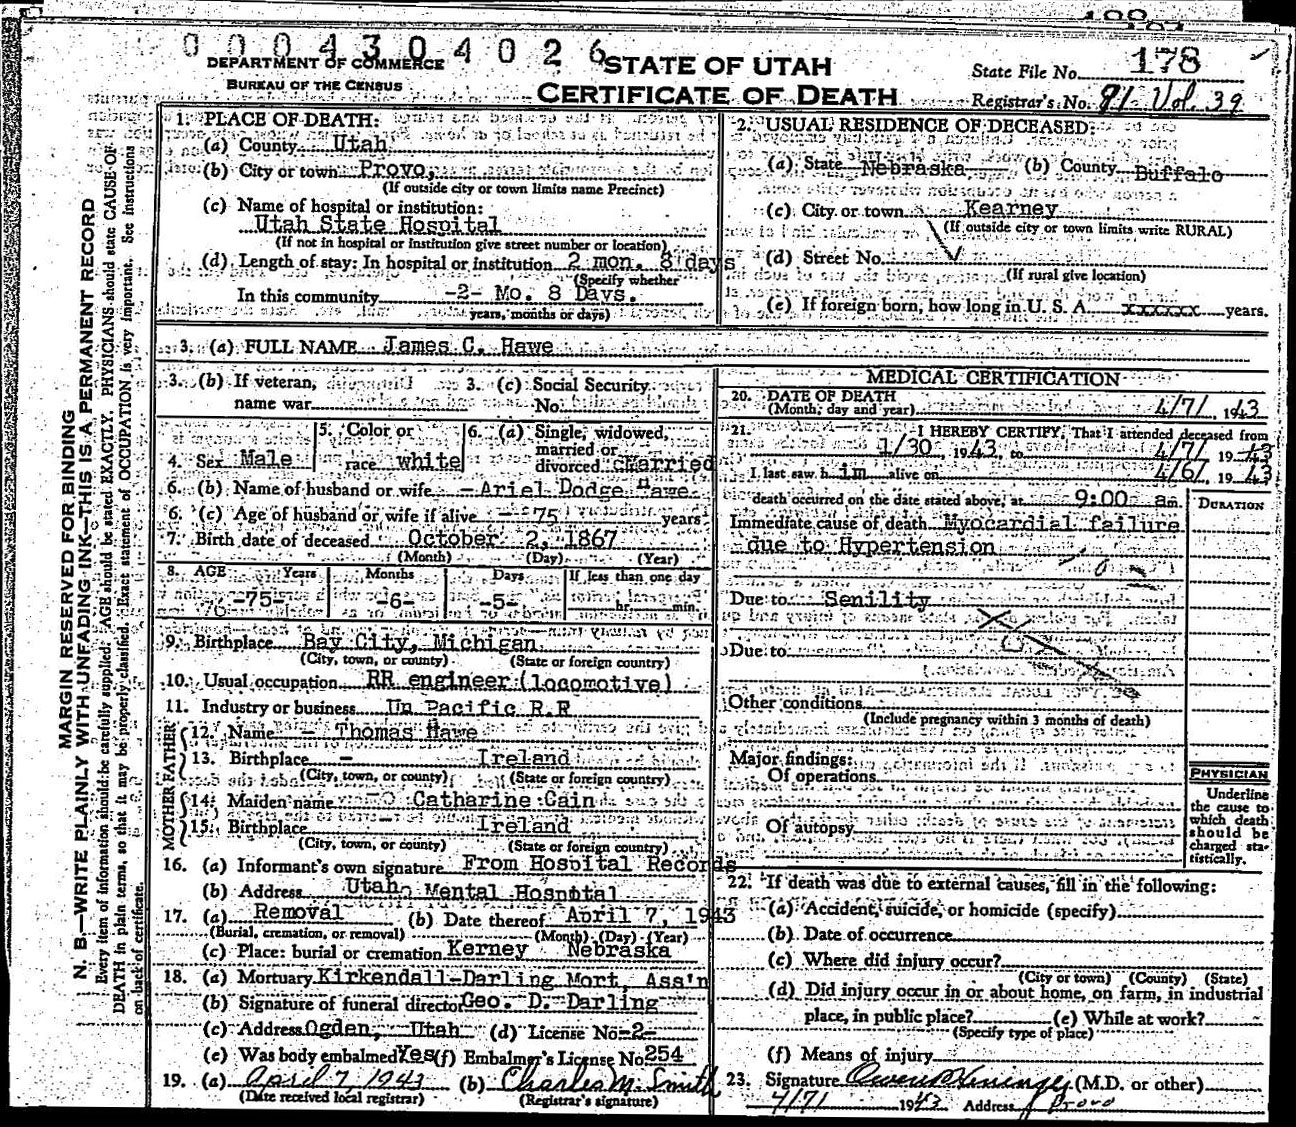 0 0 0 4 3 0 4 0 2 6
DEPARTMENT OF COMMERCE
BUREAU OF THE CENSUS
STATE OF UTAH
CERTIFICATE OF DEATH
State File No. 178
Registrar's No. 91 Vol. 39
MARGIN RESERVED FOR BINDING
N. B.—WRITE PLAINLY WITH UNFADING INK—THIS IS A PERMANENT RECORD
Every item of information should be carefully supplied. AGE should be stated EXACTLY. PHYSICIANS should state CAUSE OF
DEATH in plain terms, so that it may be properly classified. Exact statement of OCCUPATION is very important. See instructions
on back of certificate.
1. PLACE OF DEATH:
(a) County Utah
(b) City or town Provo,
(If outside city or town limits name Precinct)
(c) Name of hospital or institution:
Utah State Hospital
(If not in hospital or institution give street number or location)
(d) Length of stay: In hospital or institution 2 mon. 8 days
(Specify whether
In this community -2- Mo. 8 Days.
years, months or days)
2. USUAL RESIDENCE OF DECEASED:
(a) State Nebraska (b) County Buffalo
(c) City or town Kearney
(If outside city or town limits write RURAL)
(d) Street No.
(If rural give location)
(e) If foreign born, how long in U. S. A. xxxxxx years.
3. (a) FULL NAME James C. Hawe
3. (b) If veteran, name war
3. (c) Social Security No.
4. Sex Male
5. Color or race white
6. (a) Single, widowed, married or divorced Married
6. (b) Name of husband or wife -Ariel Dodge Hawe
6. (c) Age of husband or wife if alive 75 years
7. Birth date of deceased October 2, 1867
(Month) (Day) (Year)
8. AGE Years Months Days If less than one day
-75- -6- -5- hr. min.
9. Birthplace Bay City, Michigan
(City, town, or county) (State or foreign country)
10. Usual occupation RR engineer (locomotive)
11. Industry or business Un Pacific R.R
FATHER
12. Name - Thomas Hawe
13. Birthplace - Ireland
(City, town, or county) (State or foreign country)
MOTHER
14. Maiden name Catharine Cain
15. Birthplace Ireland
(City, town, or county) (State or foreign country)
16. (a) Informant's own signature From Hospital Records
(b) Address Utah Mental Hospital
17. (a) Removal (b) Date thereof April 7, 1943
(Burial, cremation, or removal) (Month) (Day) (Year)
(c) Place: burial or cremation Kerney Nebraska
18. (a) Mortuary Kirkendall-Darling Mort, Ass'n
(b) Signature of funeral director Geo. D. Darling
(c) Address Ogden, Utah (d) License No -2-
(e) Was body embalmed Yes (f) Embalmer's License No 254
19. (a) April 7, 1943 (b) Charles M. Smith
(Date received local registrar) (Registrar's signature)
MEDICAL CERTIFICATION
20. DATE OF DEATH
(Month, day and year) 4/7/, 1943
21. I HEREBY CERTIFY, That I attended deceased from
1/30, 1943, to 4/7/, 1943
I last saw him alive on 4/6/, 1943
death occurred on the date stated above, at 9:00 am
DURATION
Immediate cause of death Myocardial failure
due to Hypertension
Due to Senility
Due to
Other conditions
(Include pregnancy within 3 months of death)
Major findings:
Of operations
Of autopsy
PHYSICIAN
Underline
the cause to
which death
should be
charged sta-
tistically.
22. If death was due to external causes, fill in the following:
(a) Accident, suicide, or homicide (specify)
(b) Date of occurrence
(c) Where did injury occur?
(City or town) (County) (State)
(d) Did injury occur in or about home, on farm, in industrial
place, in public place? (e) While at work?
(Specify type of place)
(f) Means of injury
23. Signature (M.D. or other)
4/7/ 1943 Address Provo